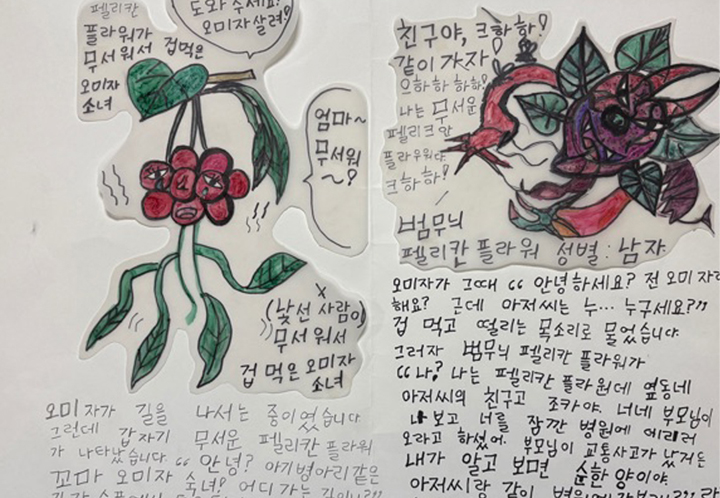 펠리칸
플라워가
무서워서 겁먹은
오미자
소녀
도와주세요?
오미자 살려!
엄마~
무서워
~?
(낯선 사람이)
무서워서
겁 먹은 오미자
소녀
오미자가 길을 나서는 중이였습니다
그런데 갑자기 무서운 펠리칸 플라워
가 나타났습니다. “안녕? 아기병아리같은
꼬마 오미자 숙녀? 어디 가는
친구야, 크하하!
같이 가자!
으하하하하!
나는 무서운
펠리크안
플라우워다
크하하!
범무늬
펠리칸 플라워 성별: 남자
오미자가 그때 “안녕하세요? 전 오미자라
해요? 근데 아저씨는 누... 누구세요?”
겁 먹고 떨리는 목소리로 물었습니다
그러자 범무늬 펠리칸 플라워가
“나? 나는 펠리칸 플라원데 옆동네
아저씨의 친구고 조카야. 너네 부모님이
나보고 너를 잠깐 병원에 데리러
오라고 하셨어. 부모님이 교통사고가 났거든
내가 알고 보면 순한 양이야.
아저씨랑 같이